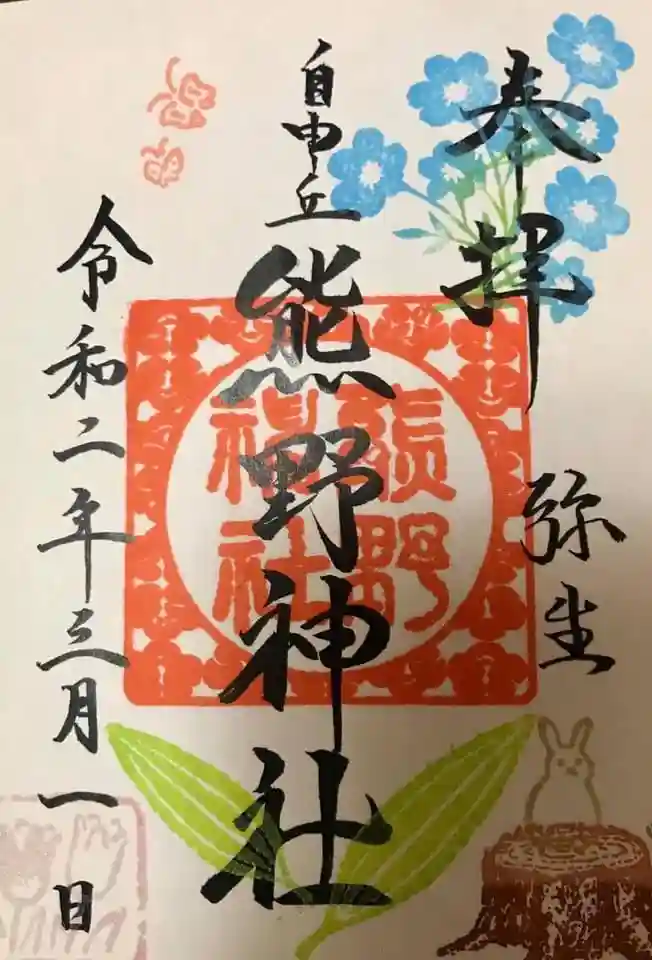 奉拝
弥生
自由丘
熊野神社
熊野
神社
令和二年三月一日